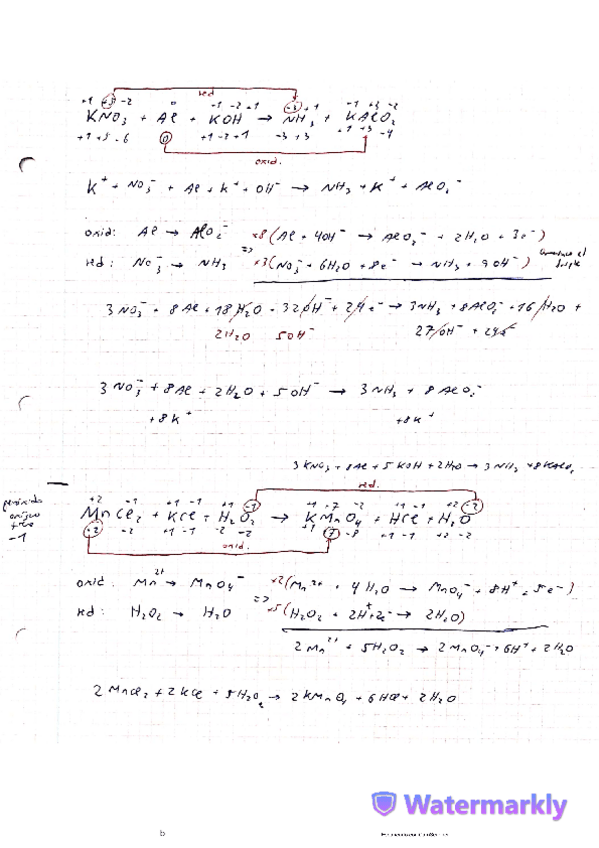 red
+1 +5 -2 0 +1 -2 +1 -3 +1 +1 +3 -2
KNO₃ + Al + KOH → NH₃ + KAlO₂
+1 +5 -6 0 +1 -2 +1 -3 +3 +1 +3 -4
oxid.
K⁺ + NO₃⁻ + Al + K⁺ + OH⁻ → NH₃ + K⁺ + AlO₂⁻
oxid: Al → AlO₂⁻ ×8 (Al + 4OH⁻ → AlO₂⁻ + 2H₂O + 3e⁻)
=>
red: NO₃⁻ → NH₃ ×3 (NO₃⁻ + 6H₂O + 8e⁻ → NH₃ + 9OH⁻)
3NO₃⁻ + 8Al + 18H₂O + 32OH⁻ + 24e⁻ → 3NH₃ + 8AlO₂⁻ + 16H₂O +
2H₂O 5OH⁻ 27OH⁻ + 24e⁻
3NO₃⁻ + 8Al + 2H₂O + 5OH⁻ → 3NH₃ + 8AlO₂⁻
+8K⁺ +8K⁺
3KNO₃ + 8Al + 5KOH + 2H₂O → 3NH₃ + 8KAlO₂
red.
peróxido
-1
+2 -1 +1 -1 +1 -1 +1 +7 -2 +1 -1 +2 -2
MnCl₂ + KCl + H₂O₂ → KMnO₄ + HCl + H₂O
+2 -2 +1 -1 +2 -2 +1 7 -8 +1 -1 +2 -2
oxid.
oxid: Mn²⁺ → MnO₄⁻ ×2 (Mn²⁺ + 4H₂O → MnO₄⁻ + 8H⁺ + 5e⁻)
=>
red: H₂O₂ → H₂O ×5 (H₂O₂ + 2H⁺ + 2e⁻ → 2H₂O)
2Mn²⁺ + 5H₂O₂ → 2MnO₄⁻ + 6H⁺ + 2H₂O
2MnCl₂ + 2KCl + 5H₂O₂ → 2KMnO₄ + 6HCl + 2H₂O
Watermarkly